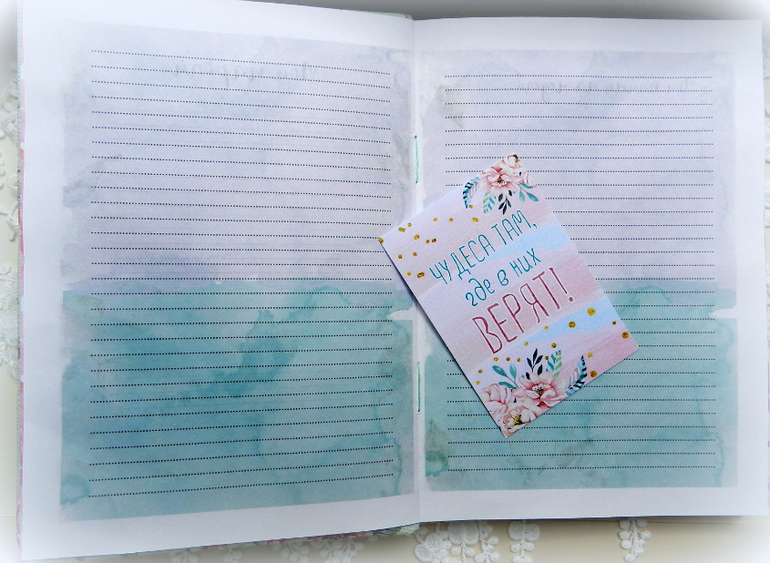 ЧУДЕСА ТАМ,
где в них
ВЕРЯТ!